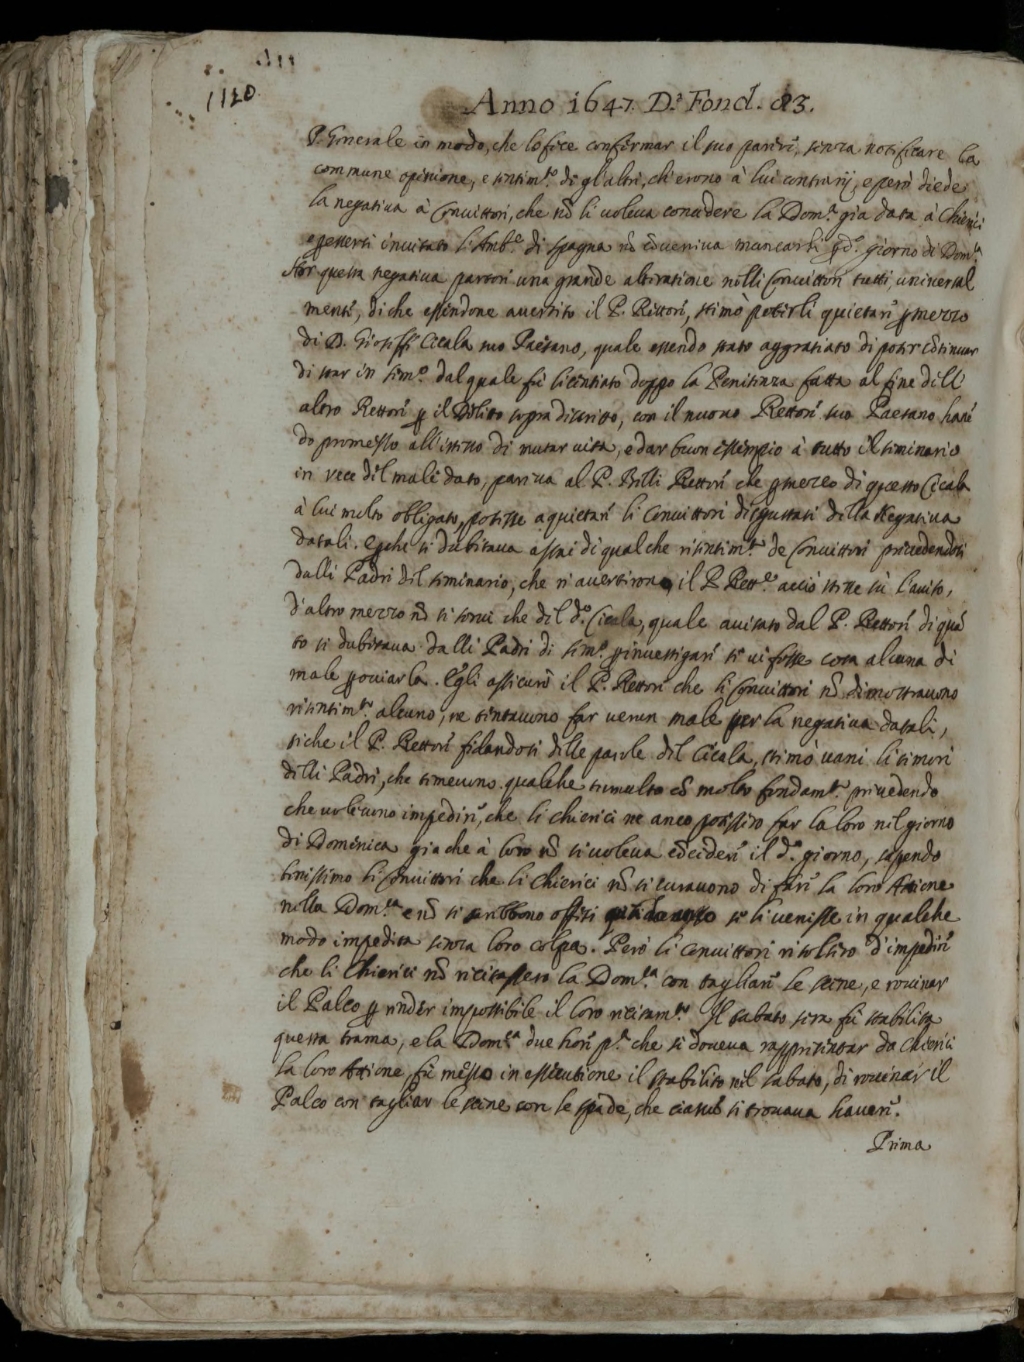 1120
Anno 1647. D.ª Fond. 83.
P. Generale in modo, che lo fece confirmar il suo parere, senza notificare la
commune opinione, e sentim.to de gl'altri, ch'erono à lui contrarij, e però diede
la negativa à Convittori, che nō li voleva concedere la Dom.ca gia data à Chierici
e per esserci invitato l'Amb.re di Spagna nō cōveniva mancarli giorno di Dom.ca
Hor questa negativa partorì una grande alteratione nelli Convittori tutti, universal
mente, di che essendone avertito il P. Rettore, stimò poterli quietare ꝑ mezzo
di D. Gioseffe Cicala suo Paesano, quale essendo stato aggratiato di poter cōtinuar
di star in Sem.o dal quale fù licentiato doppo la Penitenza fatta al fine dell'
altro Rettore ꝑ il Delitto sopradescritto, con il nuovo Rettore suo Paesano havē
do promesso all'istesso di mutar vita, e dar buon essempio à tutto il seminario
in vece del male dato, pareva al P. Belli Rettore che ꝑ mezzo di questo Cicala
à lui molto obligato, potesse aquietare li Convittori disgustati della Negativa
datali. E ꝑche si dubitava assai di qualche risentim.to de Convittori prevedendosi
dalli Padri del seminario, che n'avertirono il P. Rett.re acciò stesse sù l'aviso,
d'altro mezzo nō si servì che del d.o Cicala, quale avisato dal P. Rettore di quā
to si dubitava dalli Padri di Sem.o ꝑ investigare se vi fosse cosa alcuna di
male ꝑ oviarla. Egli assicurò il P. Rettore che li Convittori nō dimostravono
risentim.to alcuno, ne tentavono far verun male per la negativa datali,
siche il P. Rettore fidandosi delle parole del Cicala, stimò vani li timori
delli Padri, che temevono qualche tumulto cō molto fondam.to prevedendo
che volevono impedire, che li chierici ne anco potessero far la loro nel giorno
di Domenica gia che à loro nō si voleva cōcedere il d.o giorno, sapendo
benissimo li Convittori che li Chierici nō si curavono di fare la loro Attione
nella Dom.ca e nō si sarebbono offesi se li venisse in qualche
modo impedita senza loro colpa. Però li convittori risolsero d'impedire
che li Chierici nō recitassero la Dom.ca con tagliare le scene, e rovinar
il Palco ꝑ render impossibile il loro recitam.to Il sabato sera fù stabilita
questa trama, e la Dom.ca due hore p.a che si doveva rappresentar da Chierici
la loro Attione, fù messo in essecutione il stabilito nel sabato, di rovinar il
Palco con tagliar le scene con le spade, che ciascuno si trovava havere.
Prima